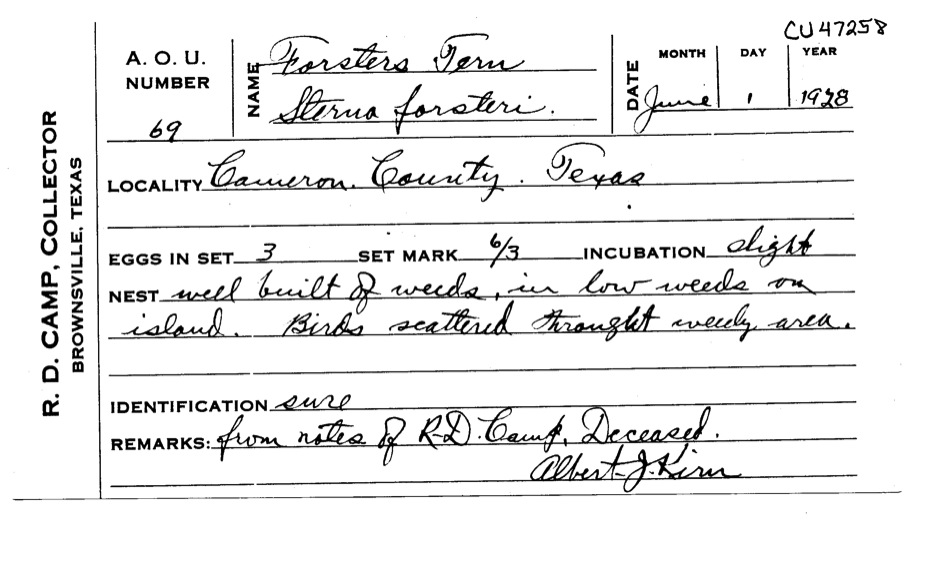 CU47258
A. O. U. NUMBER 69
NAME Forsters Tern
Sterna forsteri.
DATE MONTH DAY YEAR
June 1 1928
R. D. CAMP, COLLECTOR
BROWNSVILLE, TEXAS
LOCALITY Cameron. County. Texas
EGGS IN SET 3 SET MARK 6/3 INCUBATION slight
NEST well built of weeds, in low weeds on
island. Birds scattered throught weedy area.
IDENTIFICATION sure
REMARKS: from notes of R-D. Camp, Deceased.
Albert J. Kirn